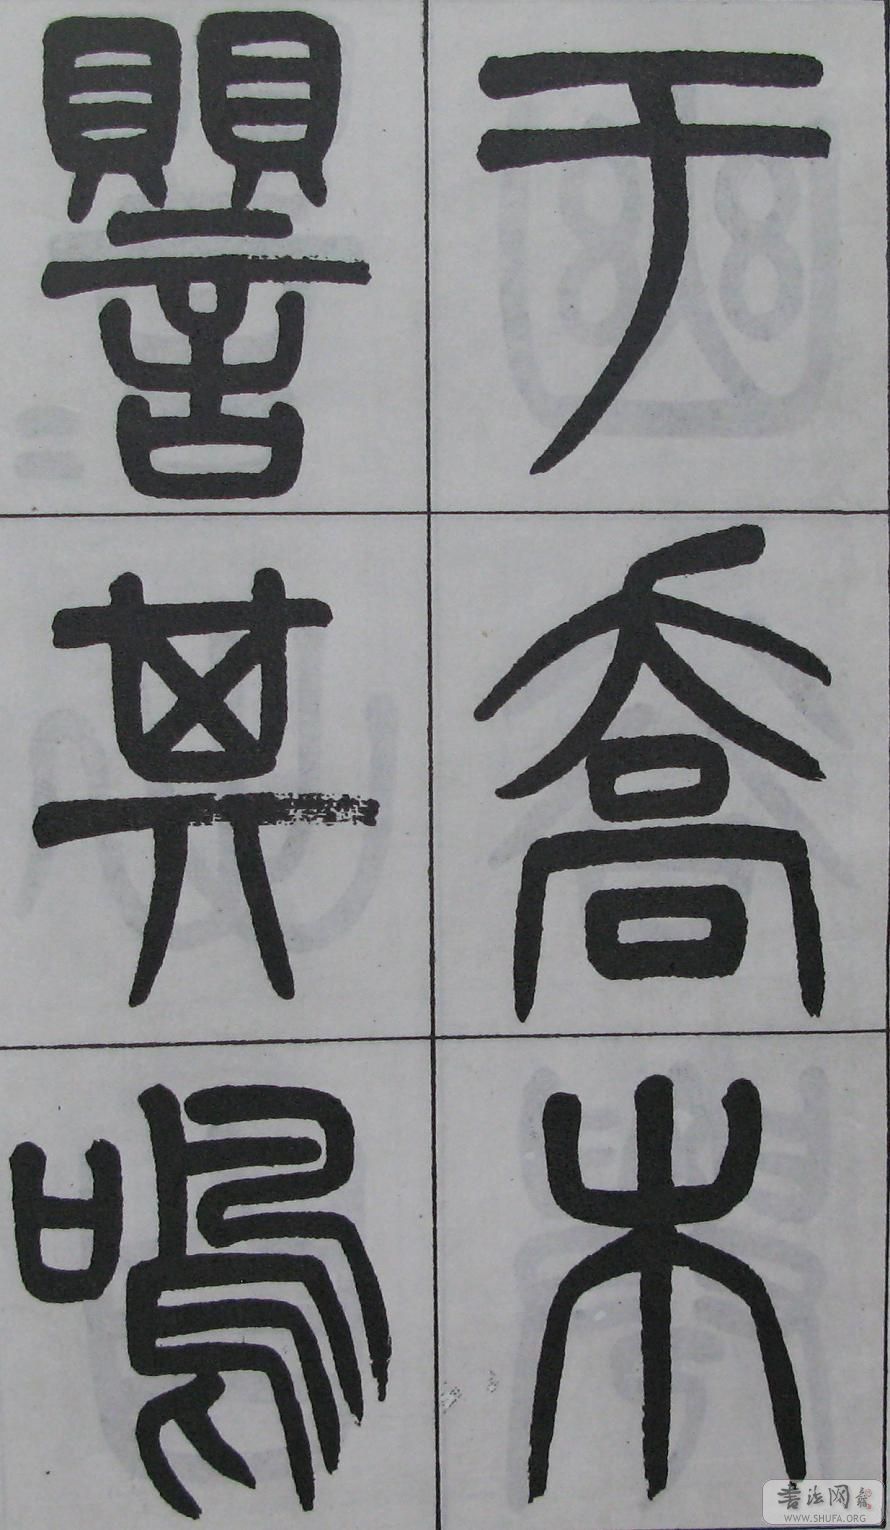 于喬木
嚶其鳴
書法网
WWW.SHUFA.ORG